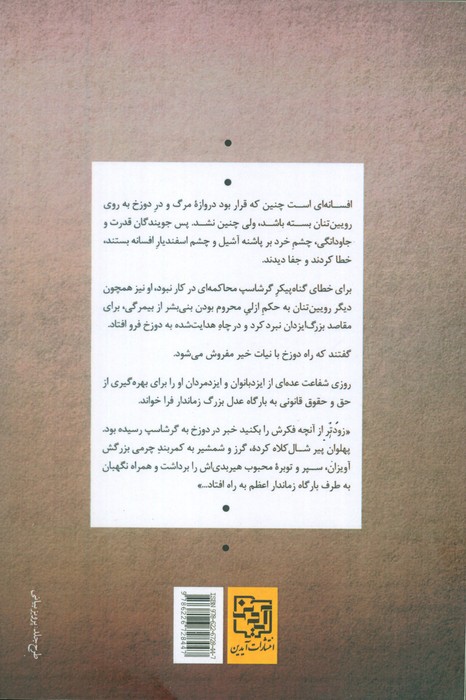 افسانه‌ای است چنین که قرار بود دروازهٔ مرگ و درِ دوزخ به روی
رویین‌تنان بسته باشد، ولی چنین نشد. پس جویندگان قدرت و
جاودانگی، چشم خرد بر پاشنه آشیل و چشم اسفندیارِ افسانه بستند،
خطا کردند و جفا دیدند.
برای خطای گناه‌پیکرِ گرشاسپ محاکمه‌ای در کار نبود، او نیز همچون
دیگر رویین‌تنان به حکم ازلیِ محروم بودن بنی‌بشر از بیمرگی، برای
مقاصد بزرگ‌ایزدان نبرد کرد و در چاهِ هدایت‌شده به دوزخ فرو افتاد.
گفتند که راه دوزخ با نیات خیر مفروش می‌شود.
روزی شفاعت عده‌ای از ایزدبانوان و ایزدمردان او را برای بهره‌گیری از
حق و حقوق قانونی به بارگاه عدل بزرگ زماندار فرا خواند.
«زودتر از آنچه فکرش را بکنید خبر در دوزخ به گرشاسپ رسیده بود.
پهلوان پیر شال‌کلاه کرده، گرز و شمشیر به کمربندِ چرمی بزرگش
آویزان، سپر و توبرهٔ محبوب هیربدی‌اش را برداشت و همراه نگهبان
به طرف بارگاه زماندار اعظم به راه افتاد...»
طرح جلد: پرویز بیانی
ISBN: 978-622-6728-44-7
9786226728447
آیدین
انتشارات آیدین